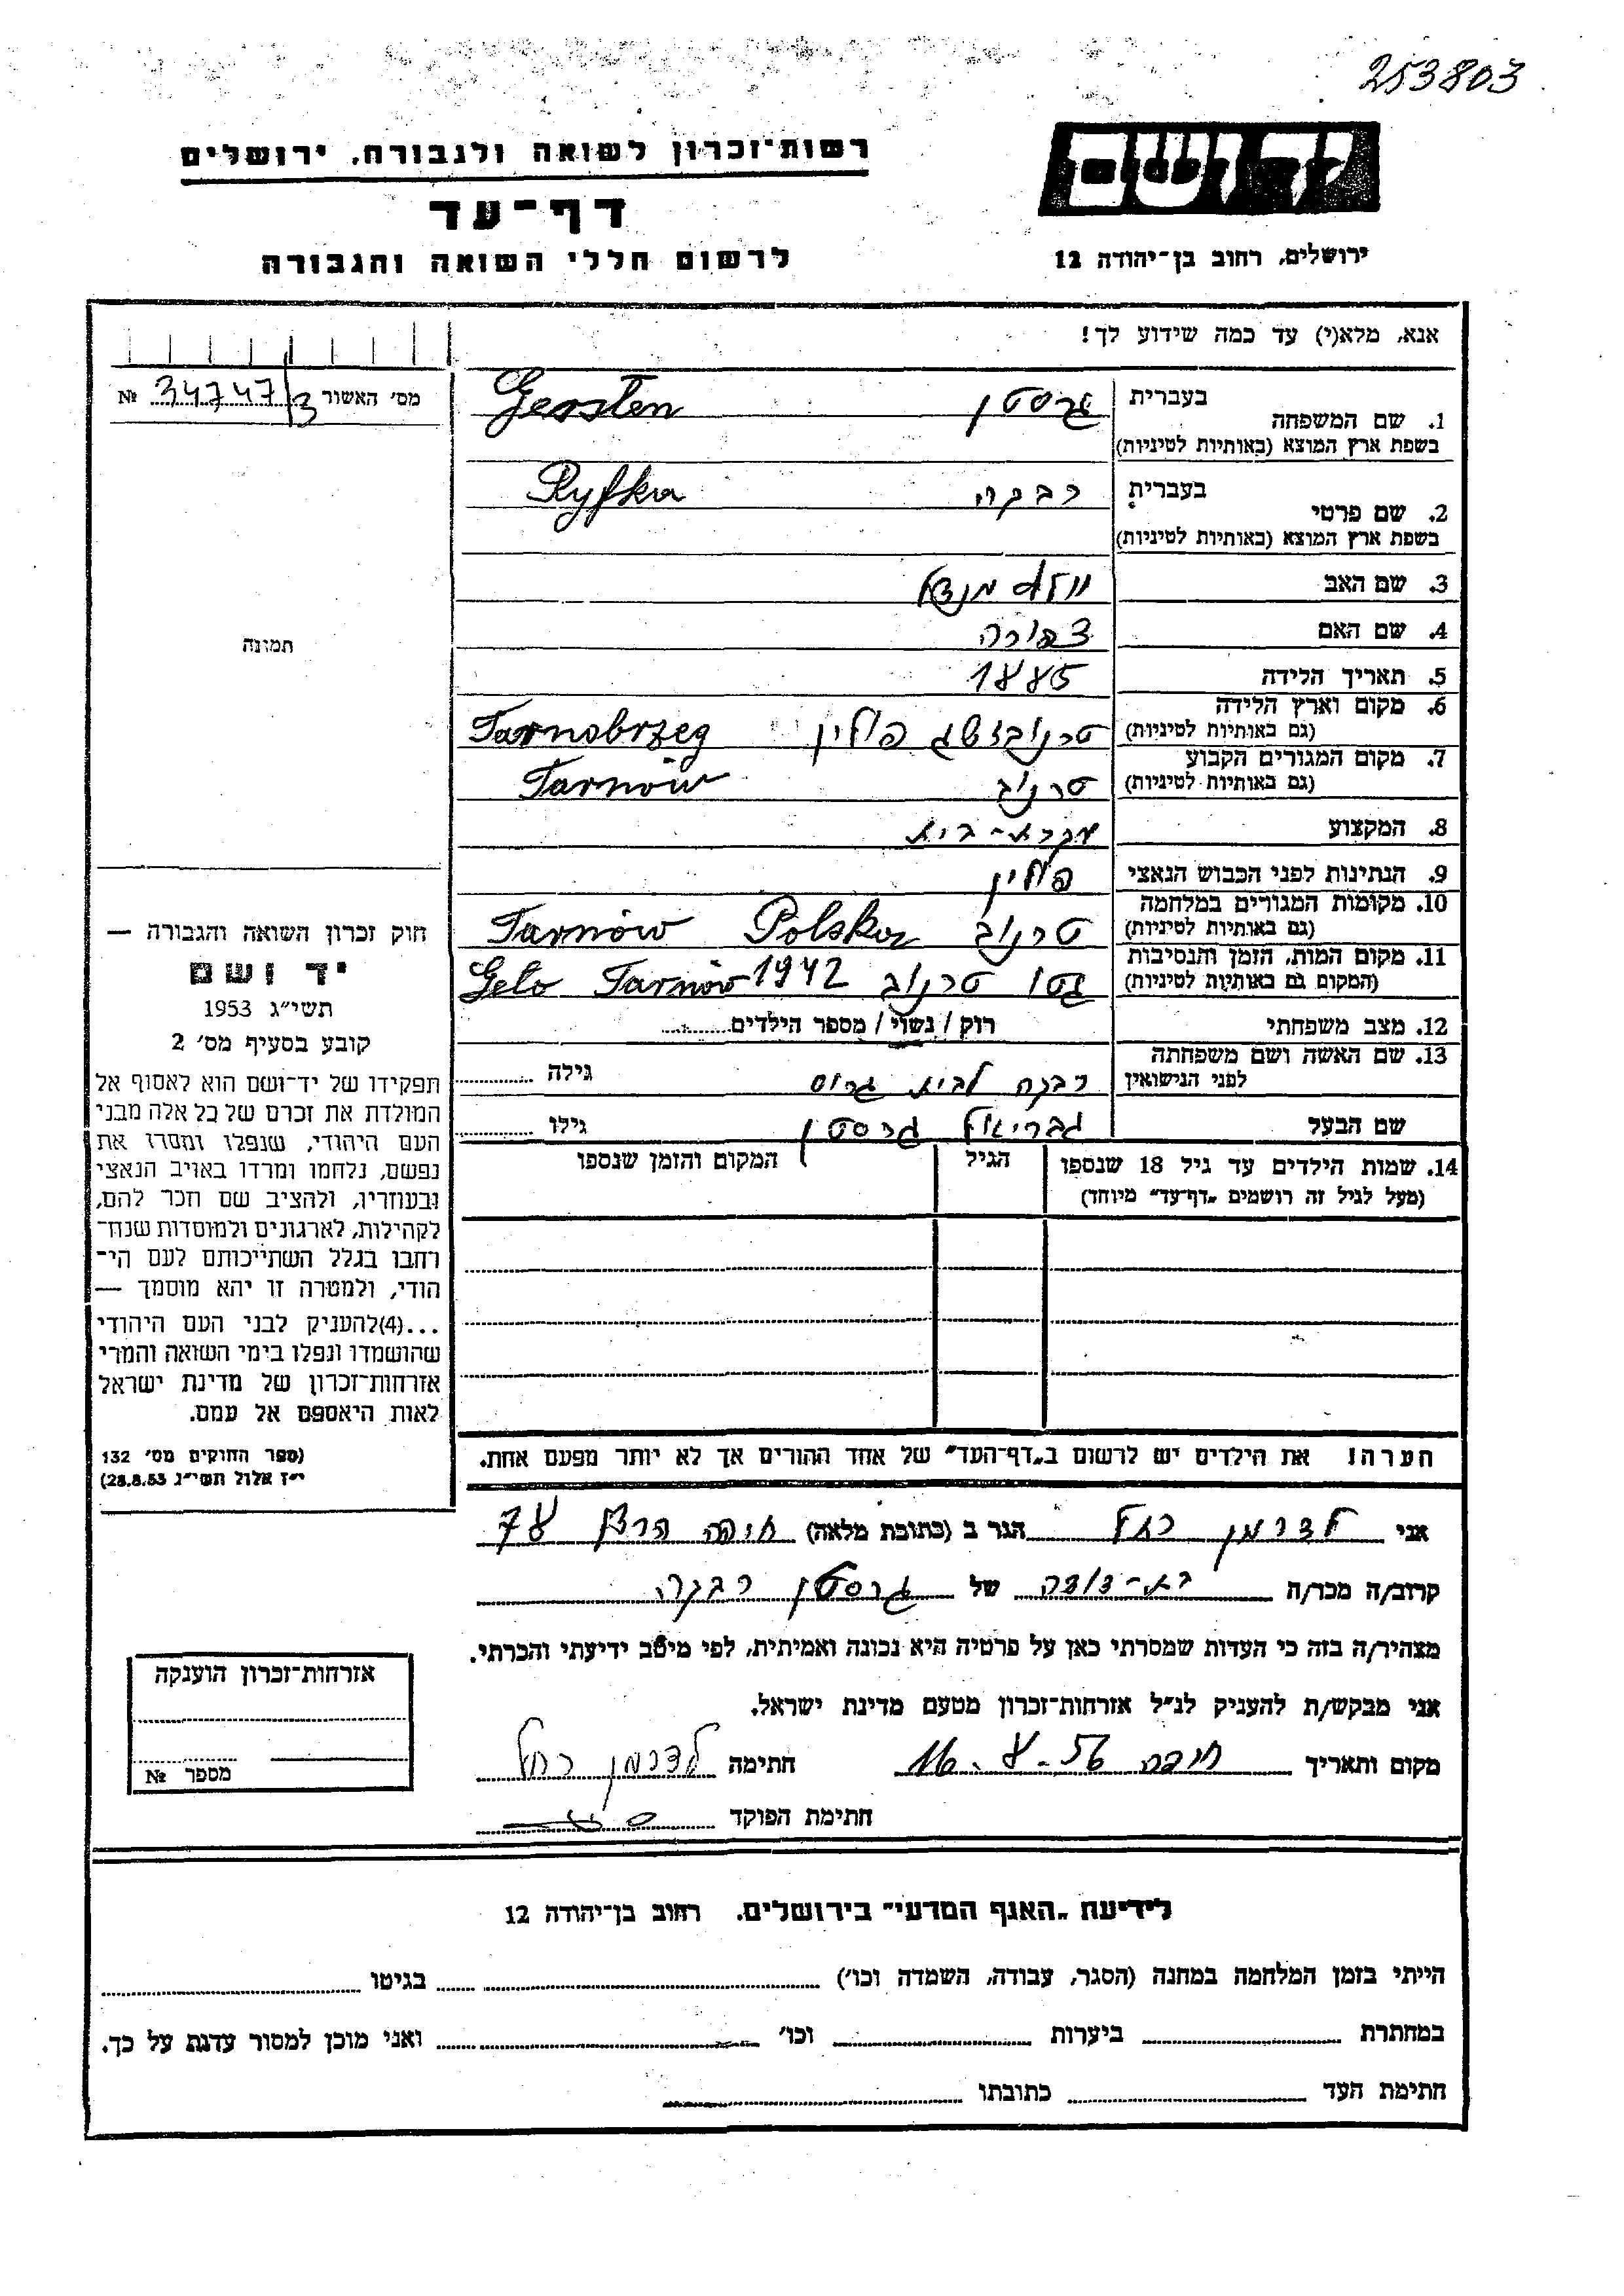 253803
רשות־זכרון לשואה ולגבורה, ירושלים
יד ושם
דף־עד
לרשום חללי השואה והגבורה
ירושלים, רחוב בן־יהודה 12
אנא, מלא(י) עד כמה שידוע לך!
מס׳ האשור 34747/3 №
1. שם המשפחה
בעברית גרסטן
בשפת ארץ המוצא (באותיות לטיניות) Gersten
2. שם פרטי
בעברית רבקה
בשפת ארץ המוצא (באותיות לטיניות) Ryfka
3. שם האב וולף מנדל
4. שם האם צפורה
תמונה
5. תאריך הלידה 1885
6. מקום וארץ הלידה
(גם באותיות לטיניות) טרנובז׳שג פולין Tarnobrzeg
7. מקום המגורים הקבוע
(גם באותיות לטיניות) טרנוב Tarnów
8. המקצוע עקרת-בית
9. הנתינות לפני הכבוש הנאצי פולין
10. מקומות המגורים במלחמה
(גם באותיות לטיניות) טרנוב Tarnów Polska
11. מקום המות, הזמן והנסיבות
(המקום גם באותיות לטיניות) גטו טרנוב 1942 Geto Tarnów
12. מצב משפחתי רוק / נשוי / מספר הילדים
13. שם האשה ושם משפחתה
לפני הנישואין רבקה לבית גרוס גילה
שם הבעל גבריאל גרסטן גילו
14. שמות הילדים עד גיל 18 שנספו הגיל המקום והזמן שנספו
(מעל לגיל זה רושמים „דף־עד״ מיוחד)
חוק זכרון השואה והגבורה —
יד ושם
תשי״ג 1953
קובע בסעיף מס׳ 2
תפקידו של יד־ושם הוא לאסוף אל
המולדת את זכרם של כל אלה מבני
העם היהודי, שנפלו ומסרו את
נפשם, נלחמו ומרדו באויב הנאצי
ובעוזריו, ולהציב שם וזכר להם,
לקהילות, לארגונים ולמוסדות שנח־
רחבו בגלל השתייכותם לעם הי־
הודי, ולמטרה זו יהא מוסמך —
...(4)להעניק לבני העם היהודי
שהושמדו ונפלו בימי השואה והמרי
אזרחות־זכרון של מדינת ישראל
לאות היאספם אל עמם.
(ספר החוקים מס׳ 132
י״ז אלול תשי״ג 28.8.53)
הערה! את הילדים יש לרשום ב„דף־העד״ של אחד ההורים אך לא יותר מפעם אחת.
אני לדרמן רחל הגר ב (כתובת מלאה) חיפה הרצל 78
קרוב/ה מכר/ה בת-דודה של גרסטן רבקה
מצהיר/ה בזה כי העדות שמסרתי כאן על פרטיה היא נכונה ואמיתית, לפי מיטב ידיעתי והכרתי.
אני מבקש/ת להעניק לנ״ל אזרחות־זכרון מטעם מדינת ישראל.
מקום ותאריך חיפה 16.8.56 חתימה לדרמן רחל
חתימת הפוקד
אזרחות־זכרון הוענקה
מספר №
לידיעת „האגף המדעי״ בירושלים, רחוב בן־יהודה 12
הייתי בזמן המלחמה במחנה (הסגר, עבודה, השמדה וכו׳) בגיטו
במחתרת ביערות וכו׳ ואני מוכן למסור עדות על כך.
חתימת העד כתובתו